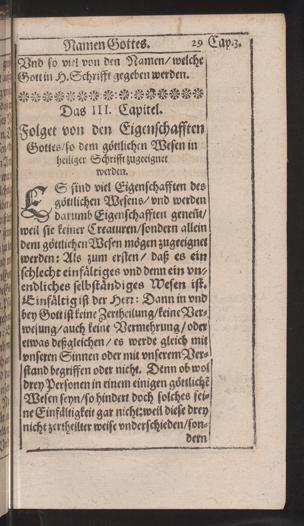 Namen Gottes. 29 Cap. 3.
Vnd so viel von den Namen / welche
Gott in H. Schrifft gegeben werden.
Das III. Capitel.
Folget von den Eigenschafften
Gottes / so dem göttlichen Wesen in
heiliger Schrifft zugeeignet
werden.
ES sind viel Eigenschafften des
göttlichen Wesens / vnd werden
darumb Eigenschafften geneñt /
weil sie keiner Creaturen / sondern allein
dem göttlichen Wesen mögen zugeeignet
werden: Als zum ersten / daß es ein
schlecht einfältiges vnd denn ein vn-
endliches selbständiges Wesen ist.
Einfältig ist der HErr: Dann in vnd
bey Gott ist keine Zertheilung / keine Ver-
wesung / auch keine Vermehrung / oder
etwas deßgleichen / es werde gleich mit
vnseren Sinnen oder mit vnserem Ver-
stand begriffen oder nicht. Denn ob wol
drey Personen in einem einigen göttlichẽ
Wesen seyn / so hindert doch solches sei-
ne Einfältigkeit gar nicht: weil diese drey
nicht zertheilter weise vnderschieden / son-
dern